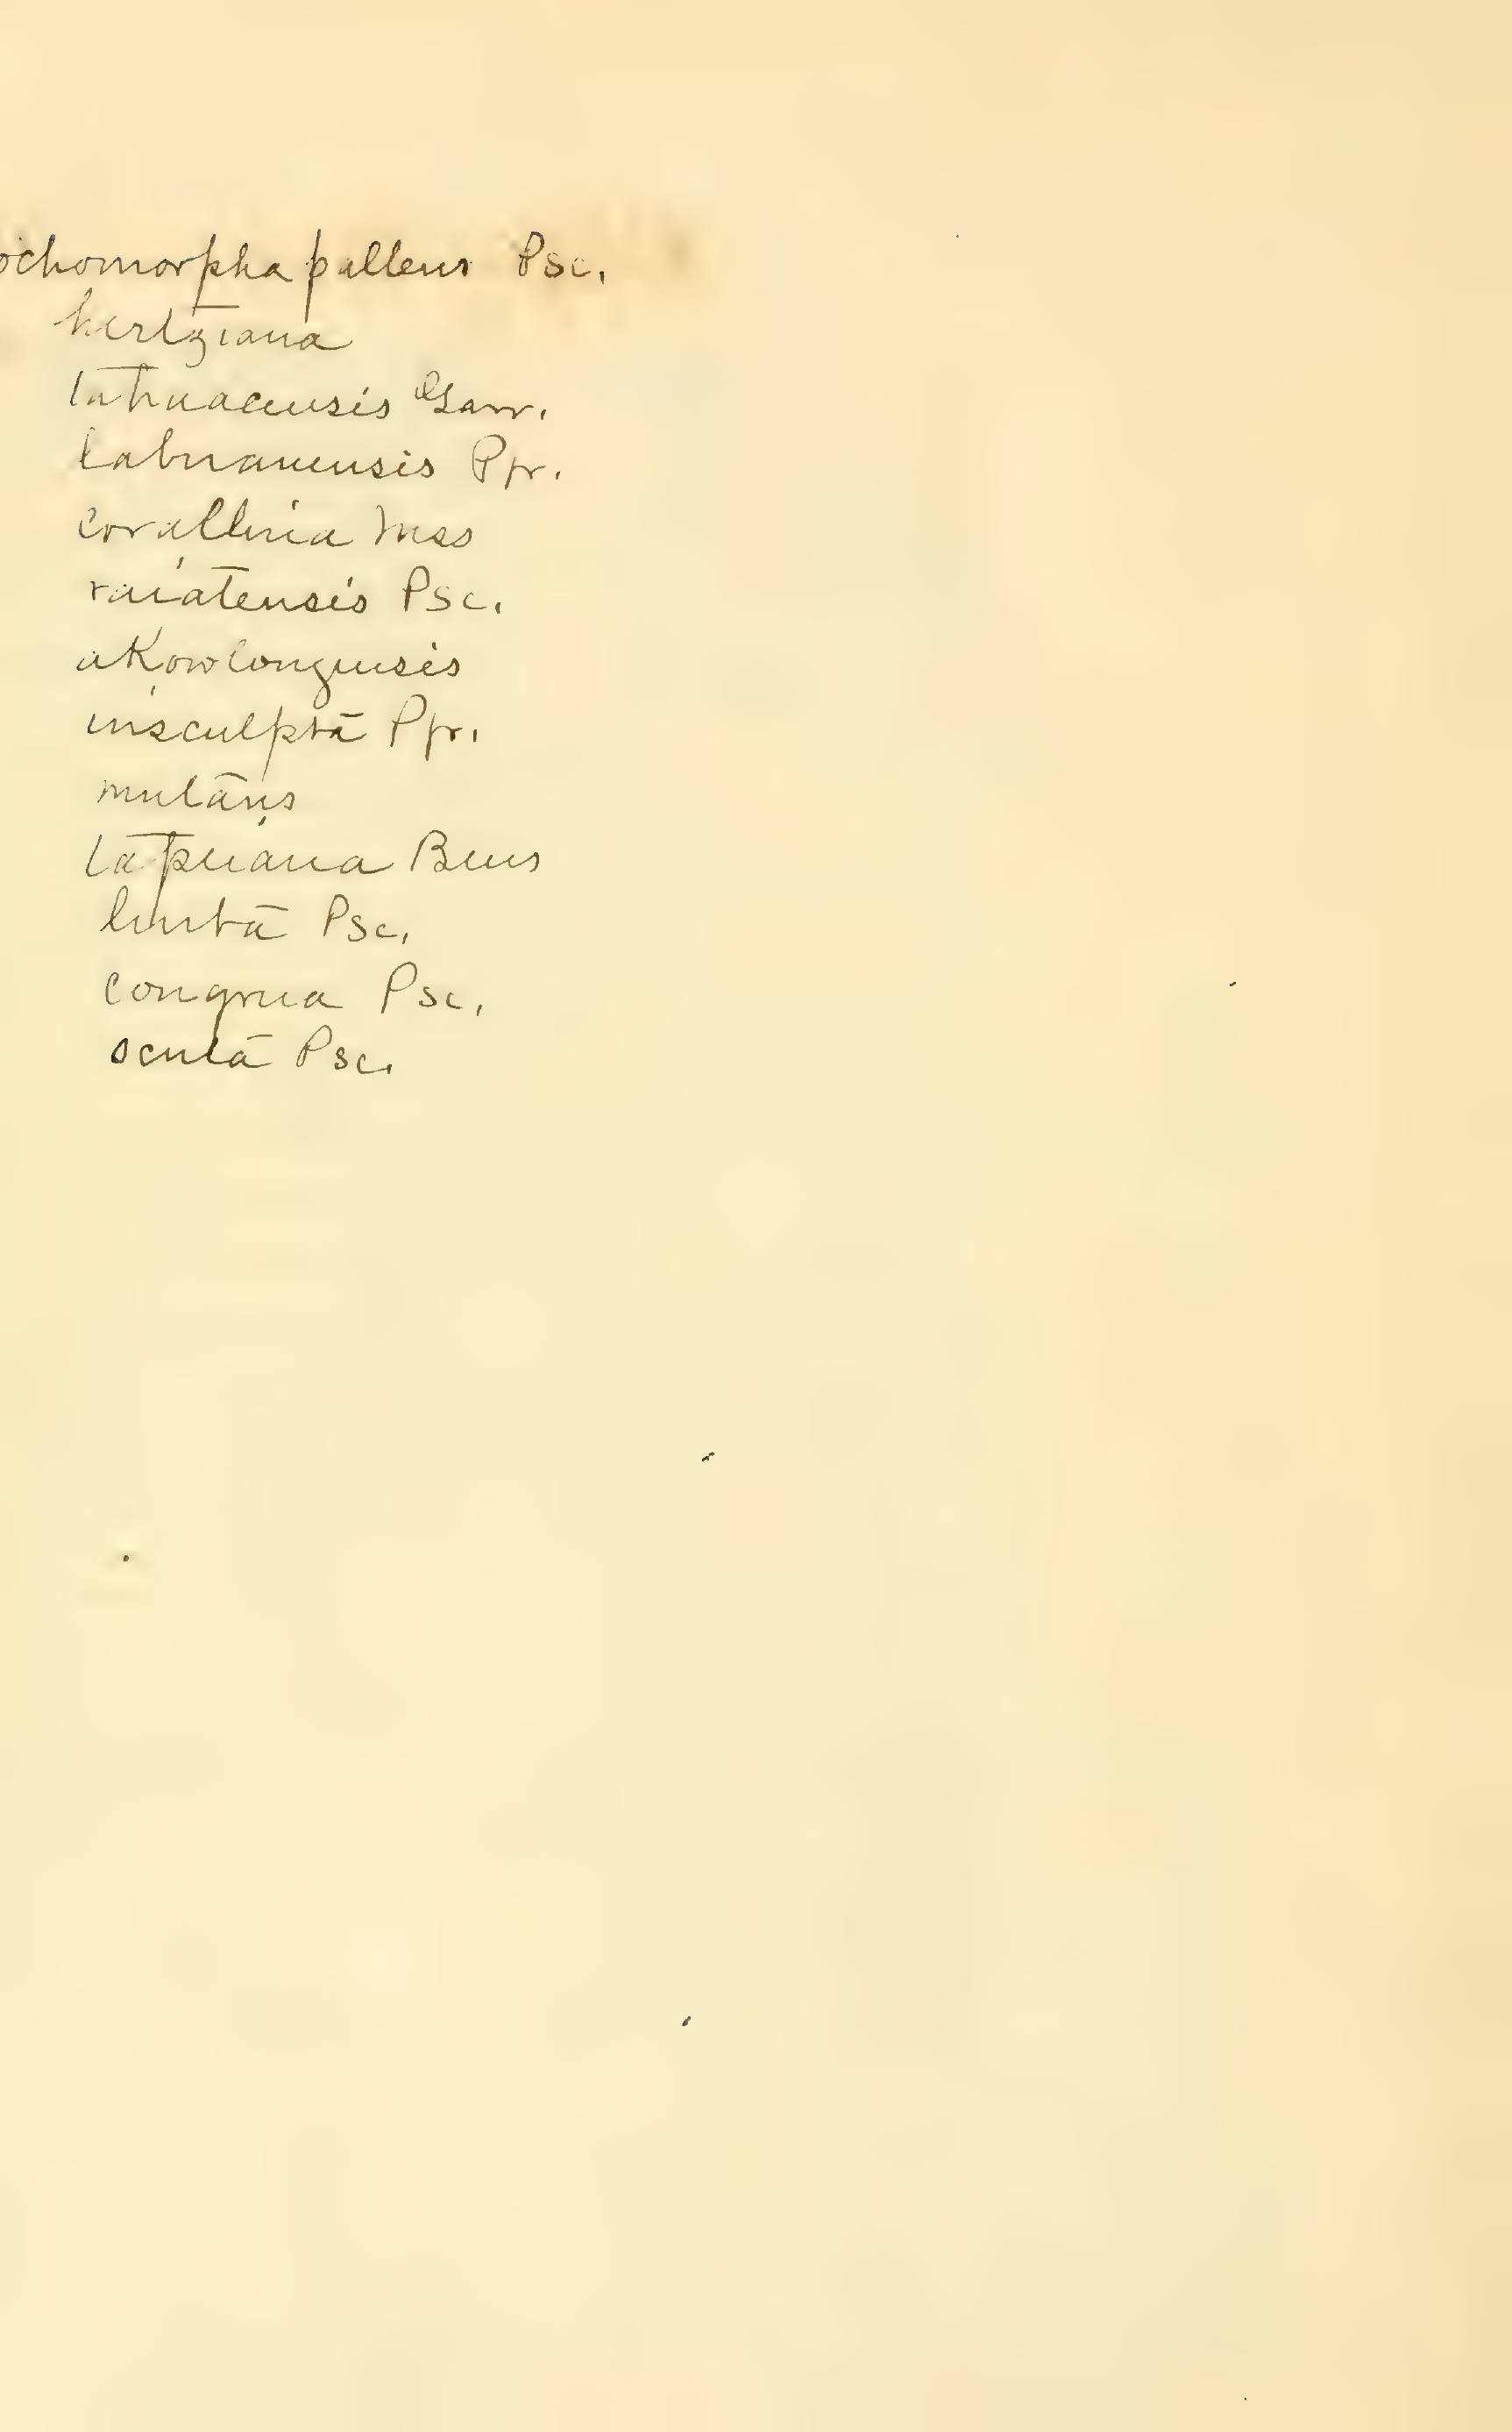 ochomorpha pallens Psc.
hertziana
tahuacensis Garr.
labuanensis Pfr.
corallina Mss
raiatensis Psc.
akowtongensis
insculpta Pfr.
mutans
Psc.
congrua Psc.
Psc.